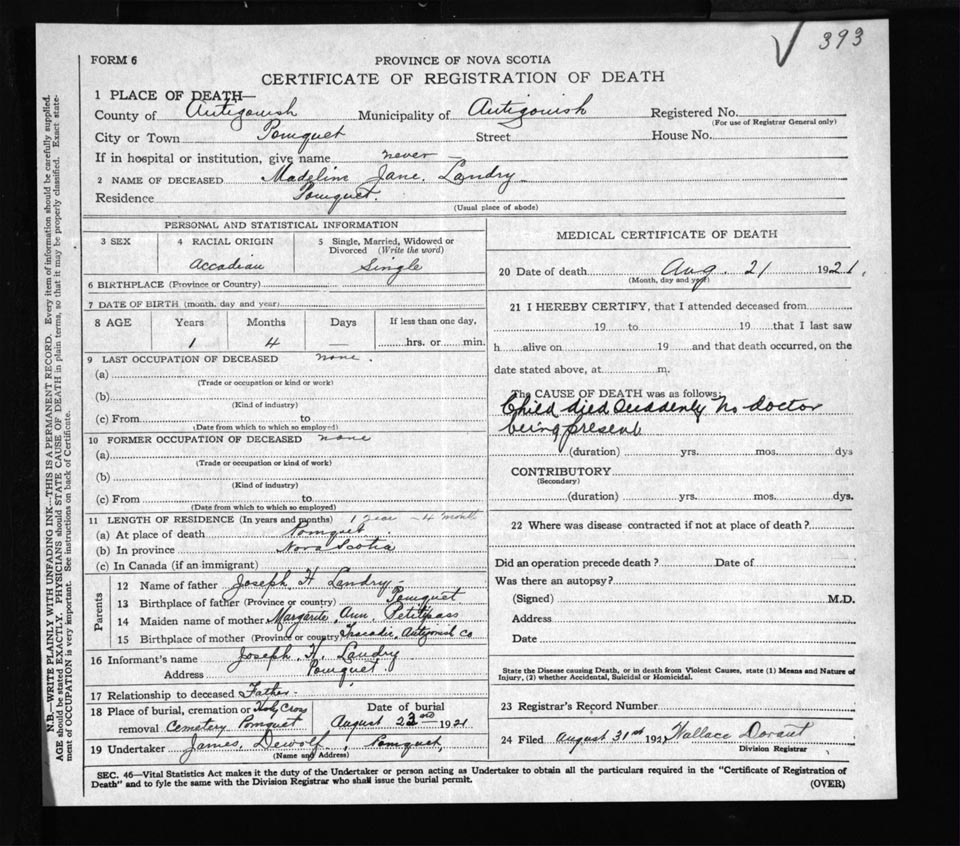 393
FORM 6
PROVINCE OF NOVA SCOTIA
CERTIFICATE OF REGISTRATION OF DEATH
1 PLACE OF DEATH—
County of Antigonish Municipality of Antigonish Registered No.
(For use of Registrar General only)
City or Town Pomquet Street House No.
If in hospital or institution, give name never
2 NAME OF DECEASED Madeline Jane Landry
Residence Pomquet.
(Usual place of abode)
PERSONAL AND STATISTICAL INFORMATION
3 SEX 4 RACIAL ORIGIN 5 Single, Married, Widowed or Divorced (Write the word)
Accadian Single
6 BIRTHPLACE (Province or Country)
7 DATE OF BIRTH (month, day and year)
8 AGE Years Months Days If less than one day,
1 4 — hrs. or min.
9 LAST OCCUPATION OF DECEASED none.
(a)
(Trade or occupation or kind or work)
(b)
(Kind of industry)
(c) From to
(Date from which to which so employed)
10 FORMER OCCUPATION OF DECEASED none
(a)
(Trade or occupation or kind of work)
(b)
(Kind of industry)
(c) From to
(Date from which to which so employed)
11 LENGTH OF RESIDENCE (In years and months) 1 year 4 month
(a) At place of death Pomquet
(b) In province Nova Scotia
(c) In Canada (if an immigrant)
Parents
12 Name of father Joseph H Landry
13 Birthplace of father (Province or country) Pomquet
14 Maiden name of mother Margarite Ann Petitpass
15 Birthplace of mother (Province or country) Tracadie, Antigonish Co
16 Informant's name Joseph H. Landry
Address Pomquet.
17 Relationship to deceased Father
18 Place of burial, cremation or removal Holy Cross Cemetery Pomquet
Date of burial August 22nd 1921
19 Undertaker James Dewolf, Pomquet,
(Name and Address)
MEDICAL CERTIFICATE OF DEATH
20 Date of death Aug. 21 1921.
(Month, day and year)
21 I HEREBY CERTIFY, that I attended deceased from
19 to 19 that I last saw
h alive on 19 and that death occurred, on the
date stated above, at m.
The CAUSE OF DEATH was as follows:
Child died suddenly no doctor
being present
(duration) yrs. mos. dys
CONTRIBUTORY
(Secondary)
(duration) yrs. mos. dys.
22 Where was disease contracted if not at place of death?
Did an operation precede death? Date of
Was there an autopsy?
(Signed) M.D.
Address
Date
State the Disease causing Death, or in death from Violent Causes, state (1) Means and Nature of
Injury, (2) whether Accidental, Suicidal or Homicidal.
23 Registrar's Record Number
24 Filed August 31st 192 Wallace Dorant
Division Registrar
SEC. 46—Vital Statistics Act makes it the duty of the Undertaker or person acting as Undertaker to obtain all the particulars required in the "Certificate of Registration of
Death" and to fyle the same with the Division Registrar who shall issue the burial permit.
(OVER)
N.B.—WRITE PLAINLY WITH UNFADING INK—THIS IS A PERMANENT RECORD. Every item of information should be carefully supplied.
AGE should be stated EXACTLY. PHYSICIANS should STATE CAUSE OF DEATH in plain terms, so that it may be properly classified. Exact state-
ment of OCCUPATION is very important. See instructions on back of Certificate.